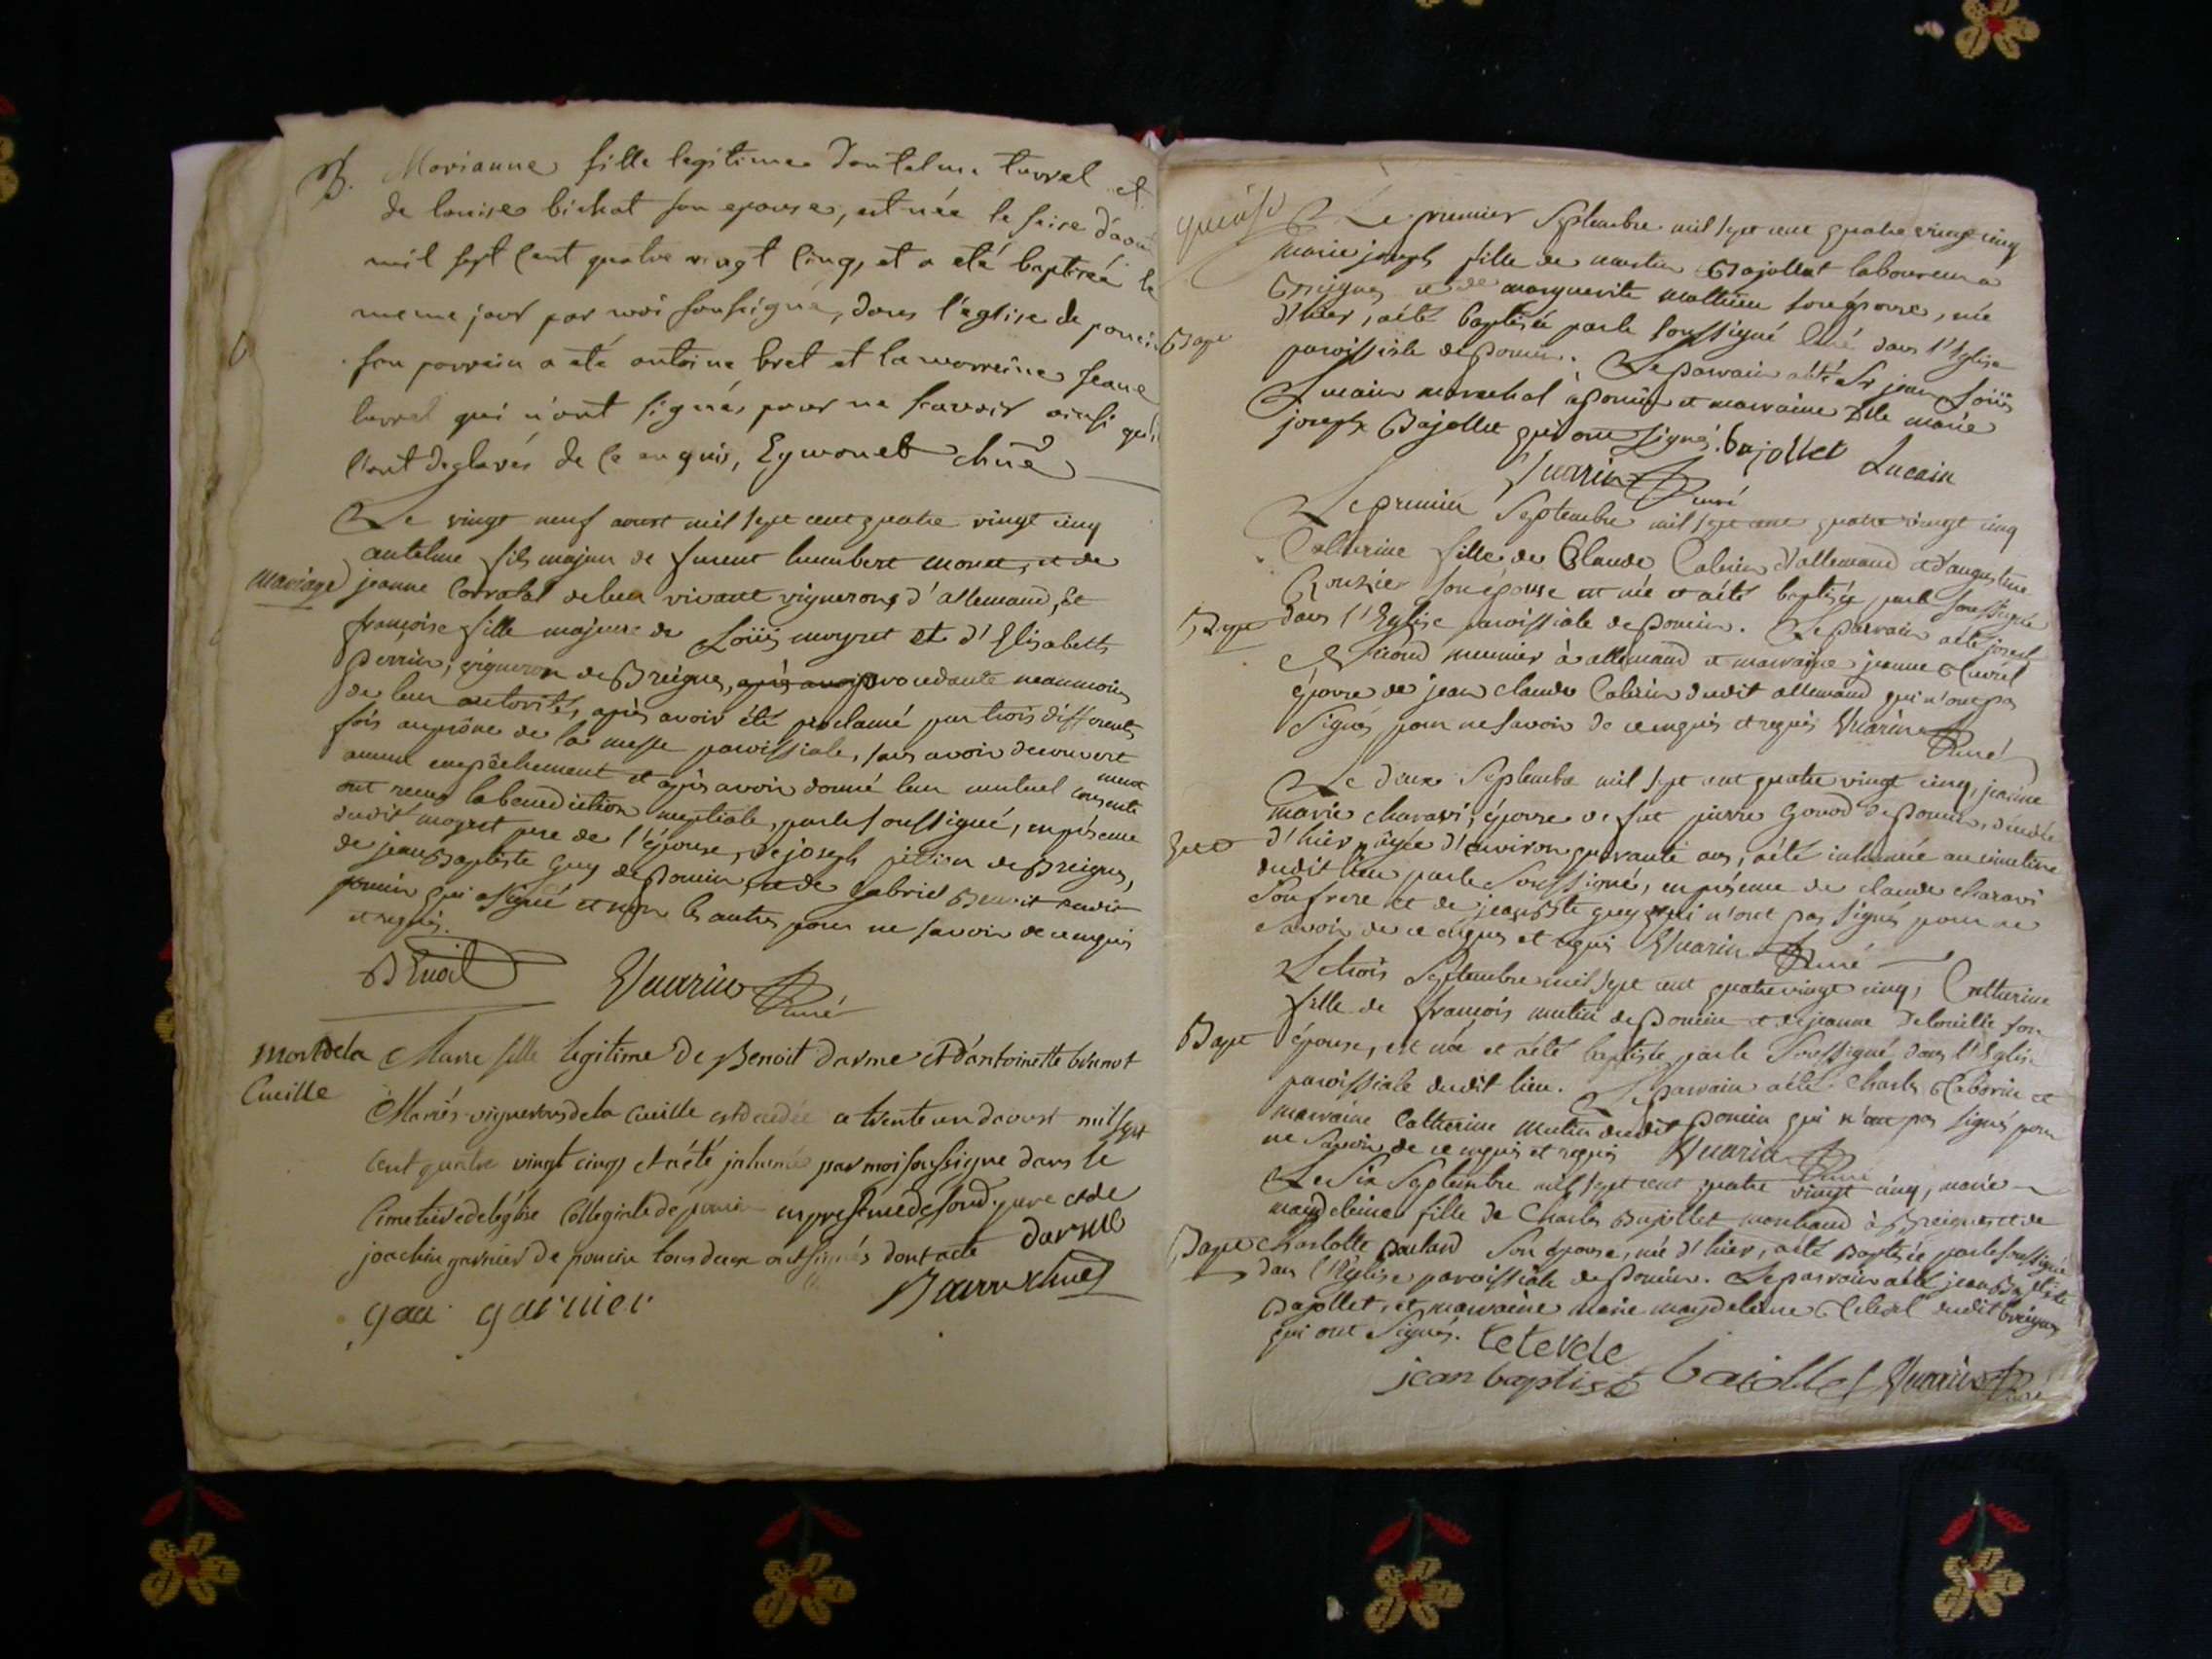 B. Marianne fille legitime d'antelme turrel et
de louise bichat son epouse, est née le seise d'aout
mil sept cent quatre vingt cinq, et a eté baptisée le
meme jour par moi soussigné, dans l'église de poncin
son parrain a eté antoine bret et la marreine jeane
turrel qui n'ont signés pour ne scavoir ainsi qu'ils
l'ont déglarés de ce enquis, Eymonet chne
Le vingt neuf aoust mil sept cent quatre vingt cinq
antelme fils majeur de furent humbert monet, et de
mariage jeanne de leur vivant vignerons d'allemand, et
françoise fille majeure de Loüis moyret et d'Elisabeth
perrin, vigneron de Breignes, après avoir procedante neanmoins
de leur autorités, après avoir été proclamé par trois differents
fois au prône de la messe paroissiale, sans avoir decouvert
aucun empêchement et après avoir donné leur mutuel consente
ment
ont reçus la benediction nuptiale, par le soussigné, en présence
dudit moyret pere de l'épouse, de joseph de Breignes,
de jean Baptiste Guy de Poncin, et de Gabriel Benoit dudit
poncin qui a signé et non les autres pour ne savoir de ce enquis
et requis.
BEnoit Vuarin Curé
mort de la Marie fille legitime de Benoit darme et d'antoinette
Cueille Mariés vignerons de la Cueille est decedée a trente un d'aoust mil sept
cent quatre vingt cinq et a été inhumée par moi soussigne dans le
Cimetiere de leglise Collegiale de poncin en presence de son pere et de
joachin garnier de poncin tous deux ont signés dont acte darme
garnier
Le premier Septembre mil sept cent quatre vingt cinq
marie joseph fille de martin Bajollet laboureur a
Breignes et de marguerite mathieu son épouse, née
Bapt d'hier, a été baptisée par le soussigné Curé dans l'Eglise
paroissiale de Poncin. Le parrain a été Sr jean Loüis
Lucain marechal à Poncin et marraine Dlle marie
joseph Bajollet qui ont signés. bajollet Lucain
Vuarin Curé
Le premier Septembre mil sept cent quatre vingt cinq
Catherine fille de Claude d'allemand et d'augustine
son épouse est née et a été baptisée par le soussigné
Bapt dans l'Eglise paroissiale de Poncin. Le parrain a été joseph
meunier à allemand et marraine jeanne
épouse de jean claude dudit allemand qui n'ont pas
signés pour ne savoir de ce enquis et requis Vuarin Curé
Le deux Septembre mil sept cent quatre vingt cinq, jeanne
marie charavi, épouse de fut pierre Gouod de Poncin, décédée
d'hier, âgée d'environ quarante ans, a été inhumée au cimetiere
dudit lieu par le Soussigné, en présence de claude charavi
son frere et de jean Bte guy qui n'ont pas signés pour ne
savoir de ce enquis et requis Vuarin Curé
Le trois Septembre mil sept cent quatre vingt cinq, Catherine
fille de françois mutin de Poncin et de jeanne son
Bapt épouse, est née et a été baptisée par le Soussigné dans l'Eglise
paroissiale dudit lieu. Le parrain a été Charles et
marraine Catherine mutin dudit Poncin qui n'ont pas signés pour
ne Savoir de ce enquis et requis Vuarin Curé
Le Six Septembre mil sept cent quatre vingt cinq, marie
magdeleine fille de Charles Bajollet marchand à Breignes et de
Bapt charlotte Son épouse, née d'hier, a été Baptisée par le soussigné
dans l'Eglise paroissiale de Poncin. Le parrain a été jean Baptiste
Bajollet, et marraine marie magdeleine dudit breignes
qui ont Signés.
jean baptiste bajollet Vuarin Curé